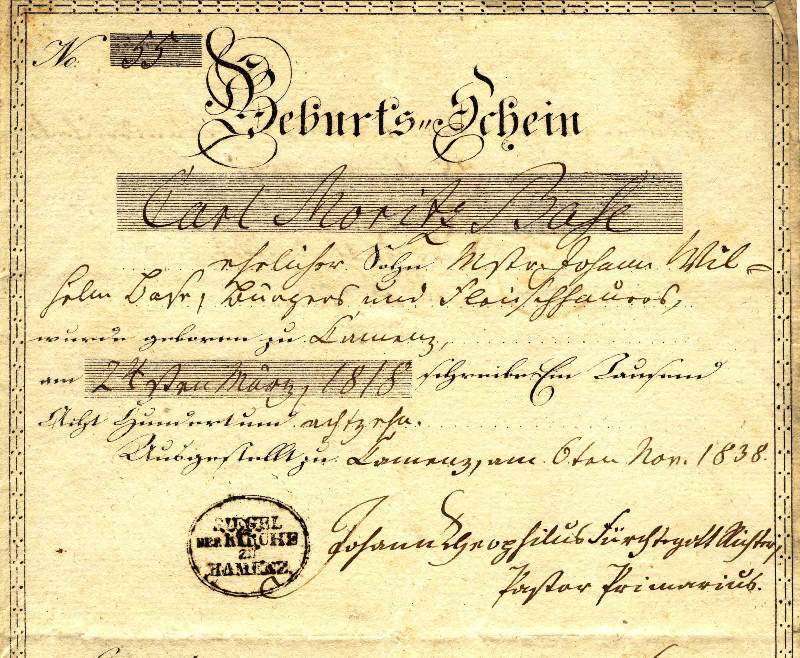 No. 55.
Geburts-Schein
Carl Moritz Base
ehelicher Sohn Mstr. Johann Wil-
helm Base, Bürgers und Fleischhauers,
wurde geboren zu Camenz,
am 24sten März, 1818 schreibe Ein Tausend
Acht Hundert und achtzehn.
Ausgestellt zu Camenz, am 6ten Nov. 1838.
SIEGEL
DER KIRCHE
ZU
KAMENZ
Johann Theophilus Fürchtegott Richter,
Pastor Primarius.